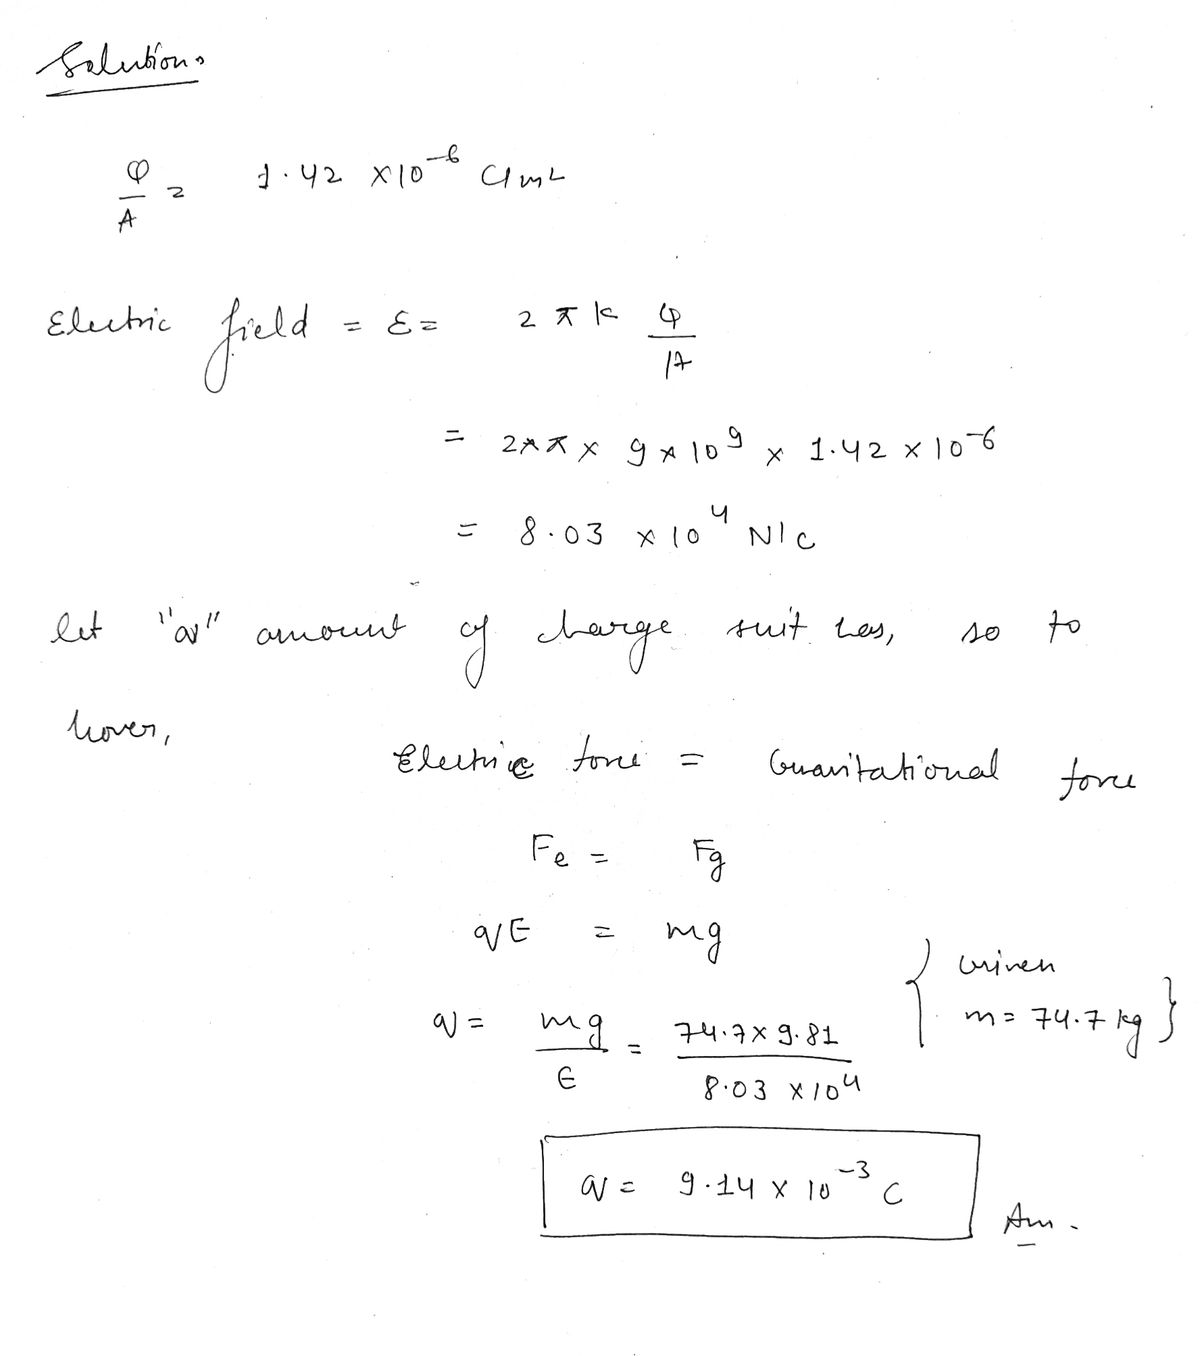 Solution:
Q/A = 1.42 × 10⁻⁶ C/m²
Electric field = E = 2 π k Q/A
= 2 × π × 9 × 10⁹ × 1.42 × 10⁻⁶
= 8.03 × 10⁴ N/C
let "q" amount of charge suit has, so to
hover,
Electric force = Gravitational force
Fe = Fg
qE = mg
q = mg/E = 74.7 × 9.81 / 8.03 × 10⁴ { Given m = 74.7 kg }
q = 9.14 × 10⁻³ C
Ans.